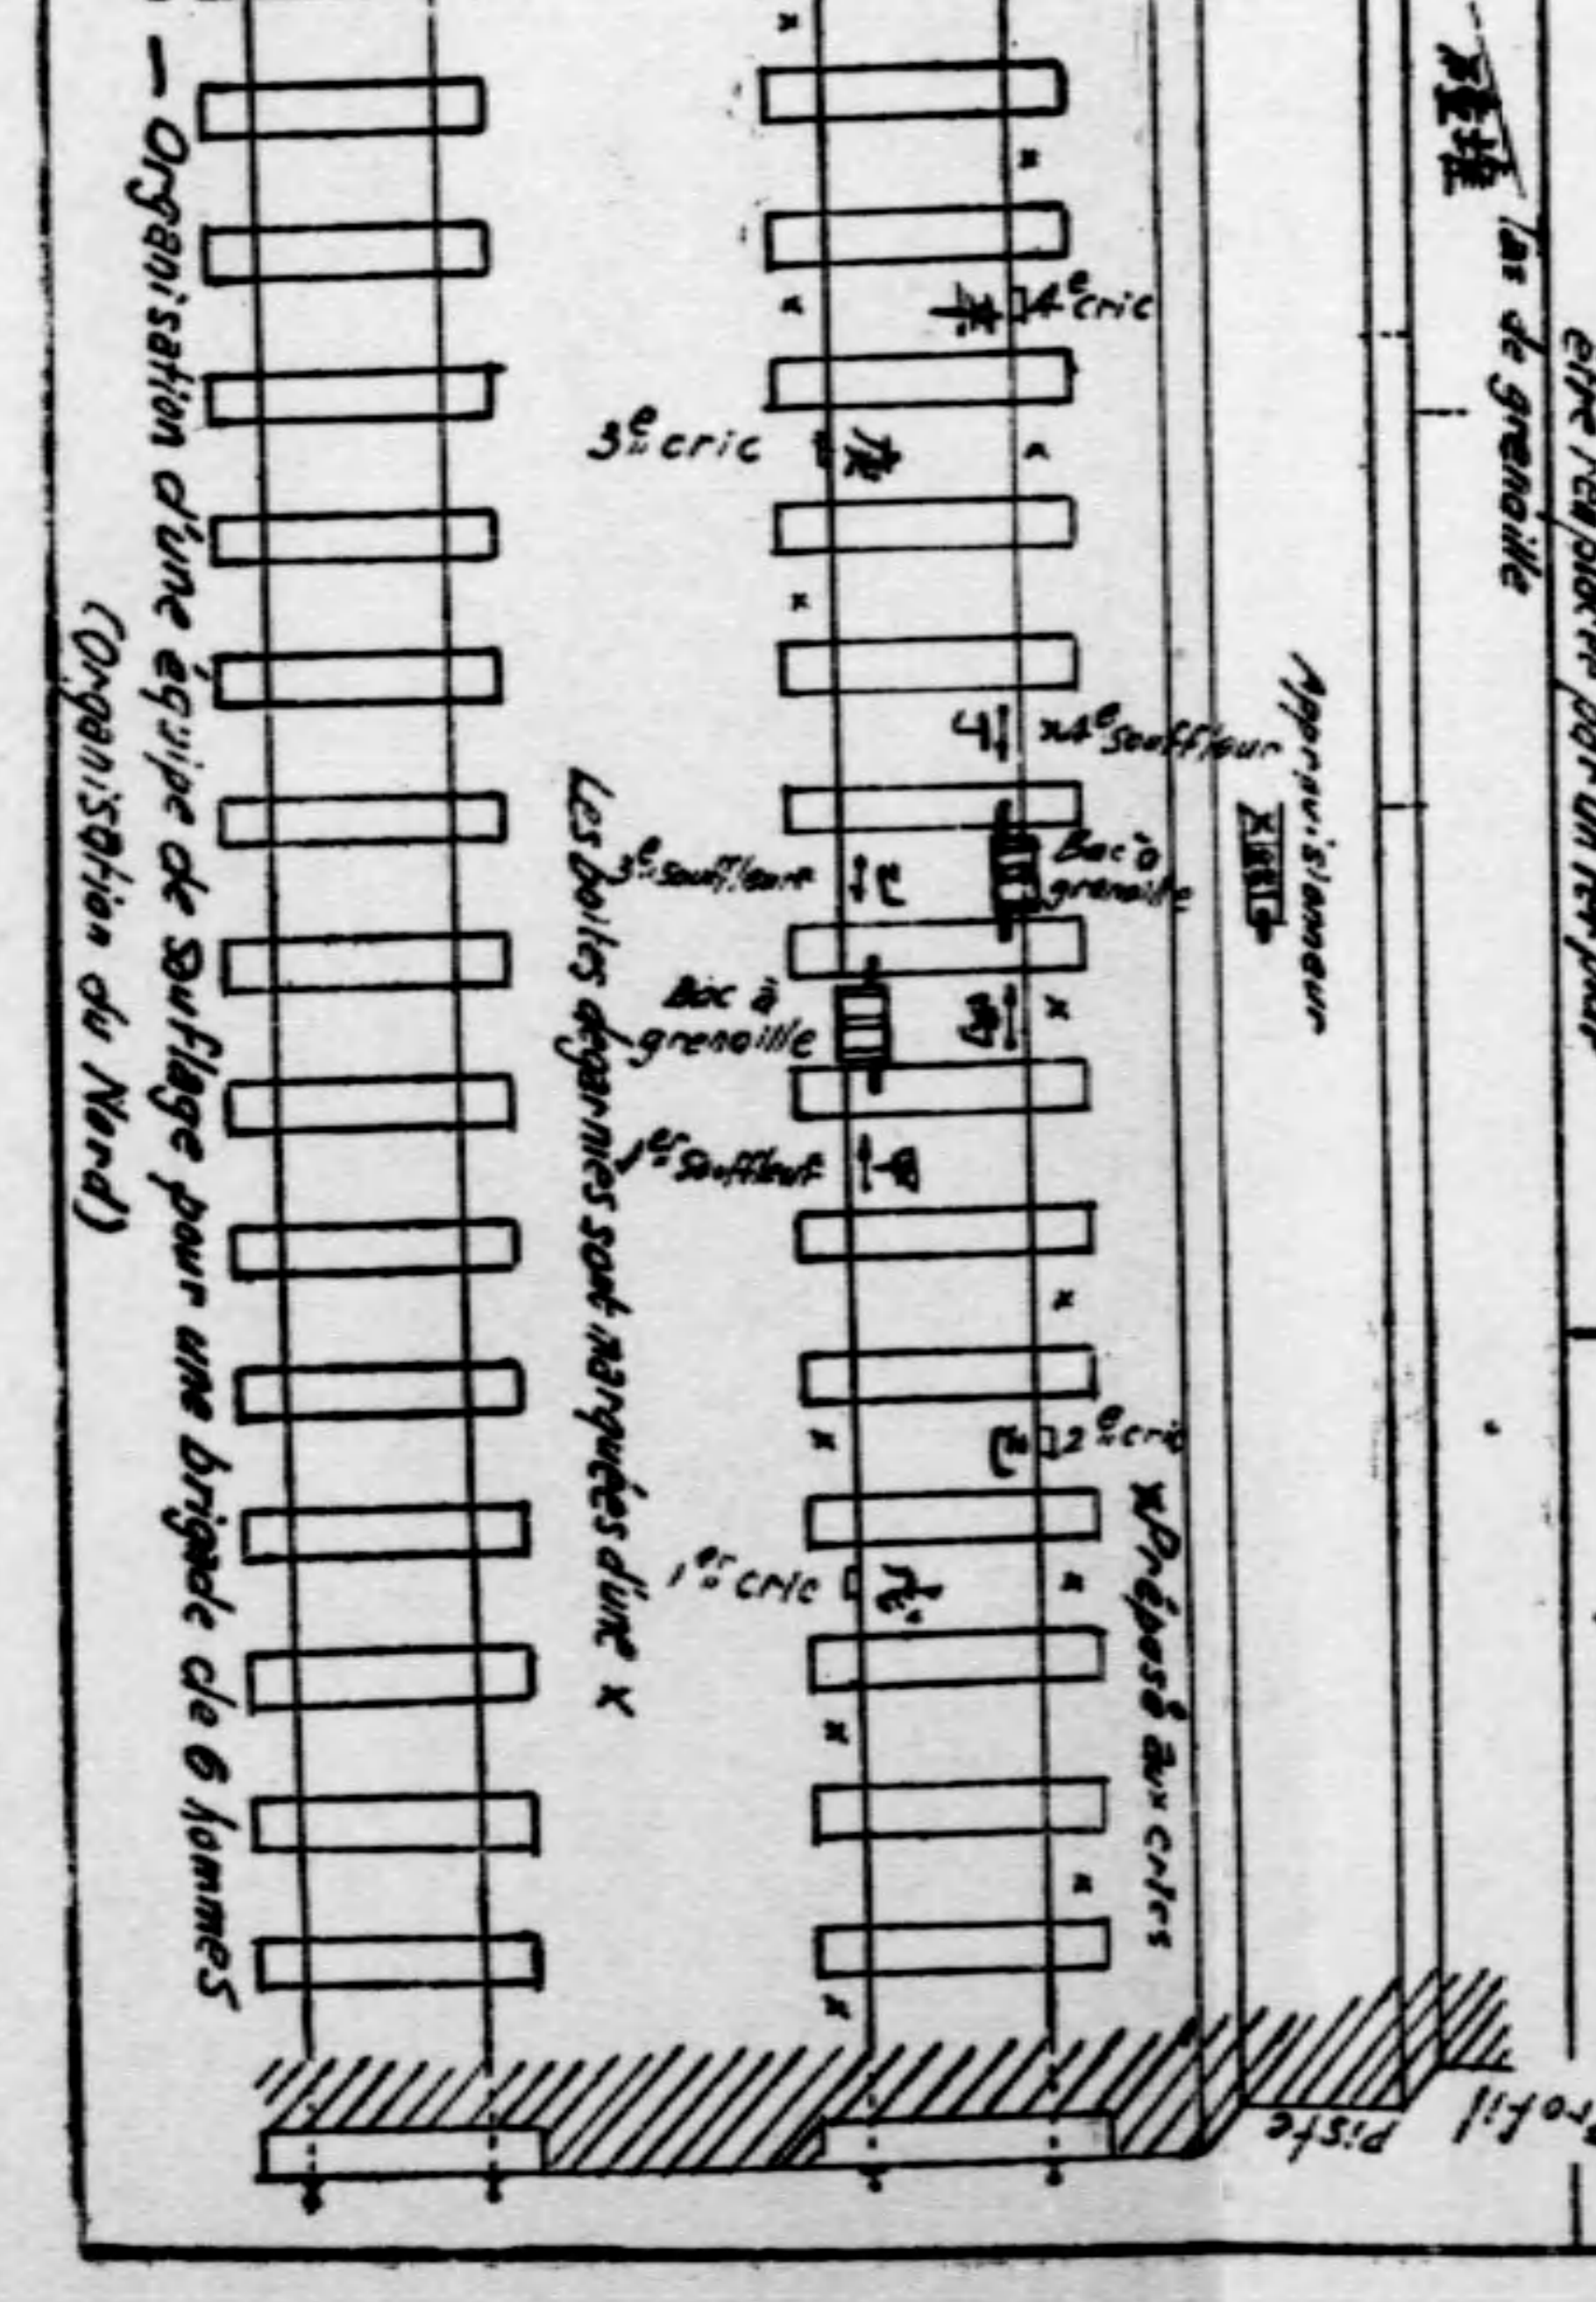 — Organisation d'une équipe de suflage pour une brigade de 6 hommes
(Organisation du Nord)
Les boites dégarnies sont marquées d'une x
4e cric
3e cric
x 4e souffleur
3e souffleur
Bac à
grenaille
Bac à
grenaille
1er souffleur
2e cric
1er cric
x Préposé aux crics
Approvis'onneur
Tas de grenaille
être remplacée par un
piste